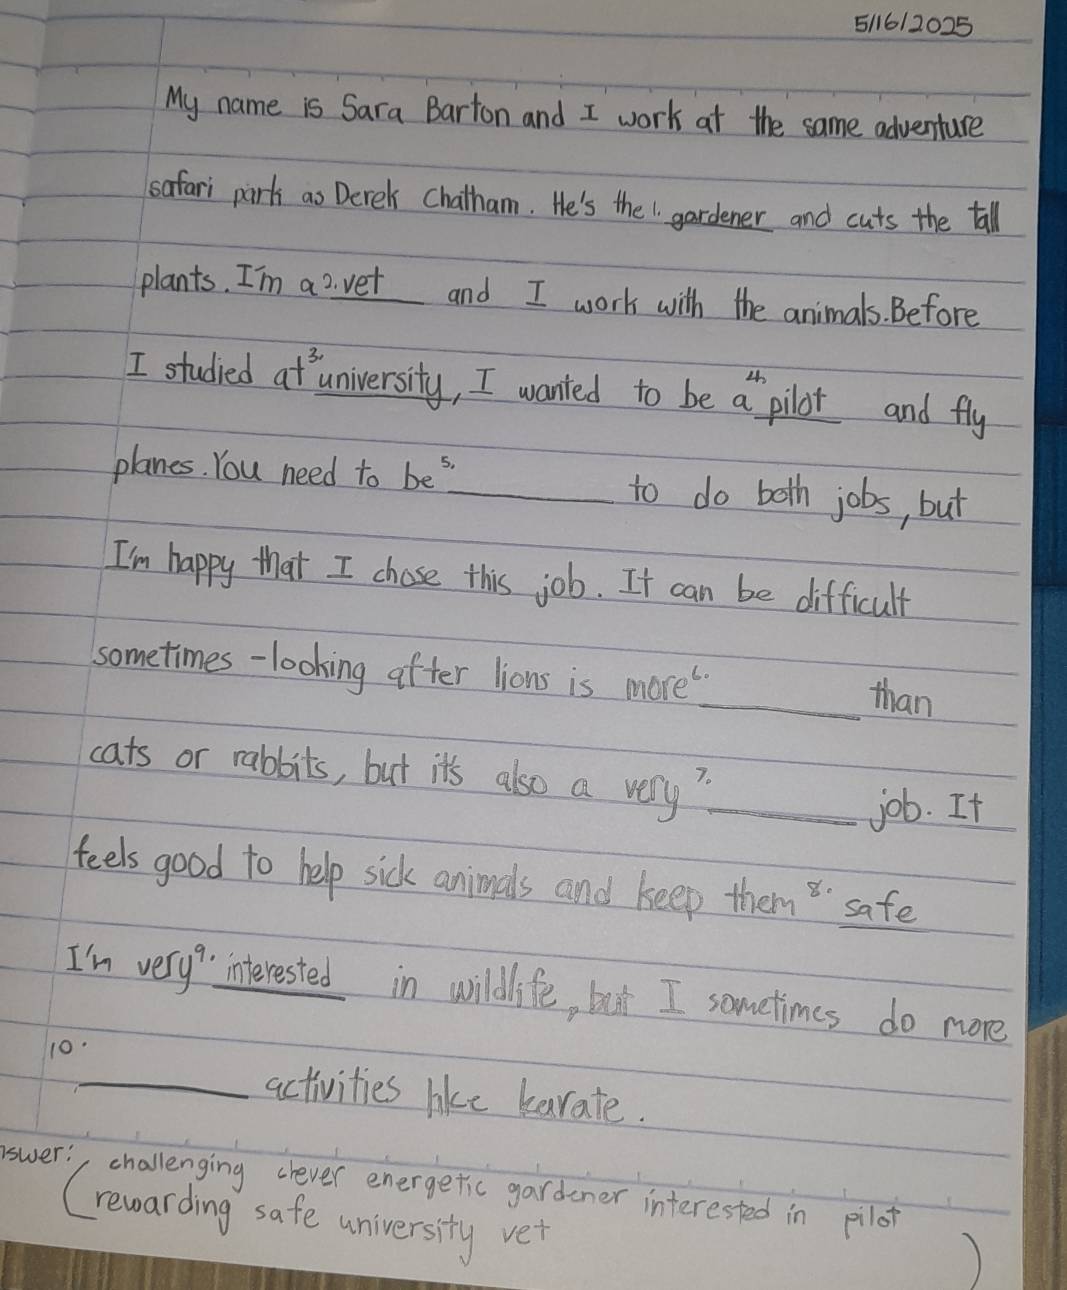 5/16/2025
My name is Sara Barton and I work at the same adventure
safari park as Derek Chatham. He's the 1. gardener and cuts the tall
plants. I'm a 2. vet and I work with the animals. Before
I studied at 3. university, I wanted to be a 4. pilot and fly
planes. You need to be 5. ________ to do both jobs, but
I'm happy that I chose this job. It can be difficult
sometimes - looking after lions is more 6. ________ than
cats or rabbits, but it's also a very 7. ________ job. It
feels good to help sick animals and keep them 8. safe
I'm very 9. interested in wildlife, but I sometimes do more
10. ________ activities like karate.
nswer: challenging clever energetic gardener interested in pilot
(rewarding safe university vet )